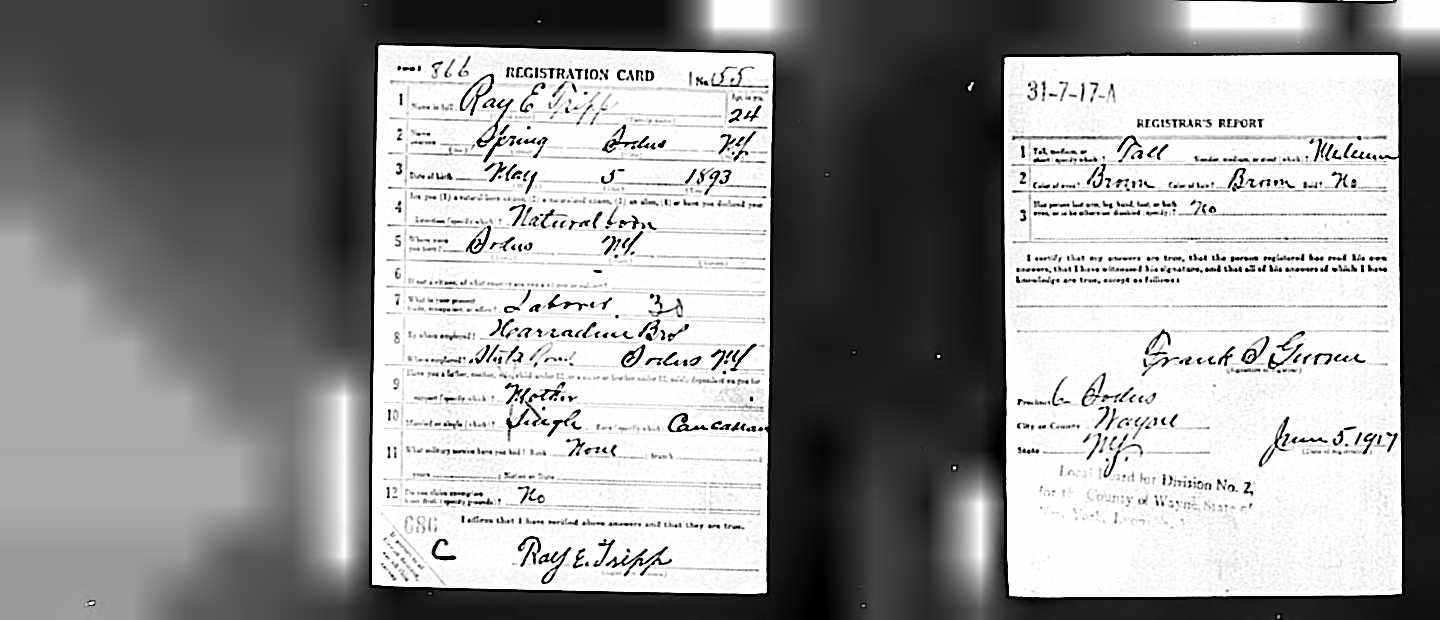 Form 1 866 REGISTRATION CARD No. 55
1 Name in full Ray E Tripp Age in yrs. 24
2 Spring Sodus N.Y.
3 Date of birth May 5 1893
4 Are you (1) a natural born citizen, (2) a naturalized citizen, (3) an alien, (4) or have you declared your
intention (specify which)? Natural born
5 Where were you born? Sodus N.Y.
6 If not a citizen, of what country are you a citizen or subject? -
7 What is your present trade, occupation, or office? Laborer 30
8 By whom employed? Bro
Where employed? State Road Sodus N.Y.
9 Have you a father, mother, wife, child under 12, or a sister or brother under 12, solely dependent on you for
support (specify which)? Mother
10 Married or single (which)? Single Race (specify which)? Caucasian
11 What military service have you had? Rank None ; branch
years ; Nation or State
12 Do you claim exemption from draft (specify grounds)? No
I affirm that I have verified above answers and that they are true.
686
C Ray E. Tripp
31-7-17-A
REGISTRAR'S REPORT
1 Tall, medium, or short (specify which)? Tall Slender, medium, or stout (which)? Medium
2 Color of eyes? Brown Color of hair? Brown Bald? No
3 Has person lost arm, leg, hand, foot, or both
eyes, or is he otherwise disabled (specify)? No
I certify that my answers are true, that the person registered has read his own
answers, that I have witnessed his signature, and that all of his answers of which I have
knowledge are true, except as follows:
Frank
(Signature of registrar)
Precinct 6 Sodus
City or County Wayne
State N.Y. June 5, 1917
(Date of registration)
Local Board for Division No. 2,
for the County of Wayne, State of
New York, Lyons, N.Y.